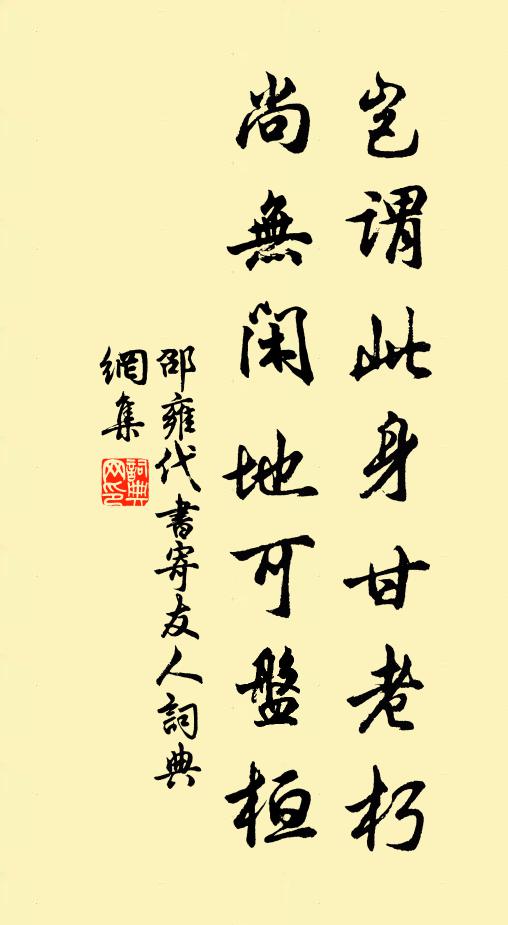 豈謂此身甘老朽
尚無閑地可盤桓
邵雍代書寄友人詞典
網集
詞典
网印